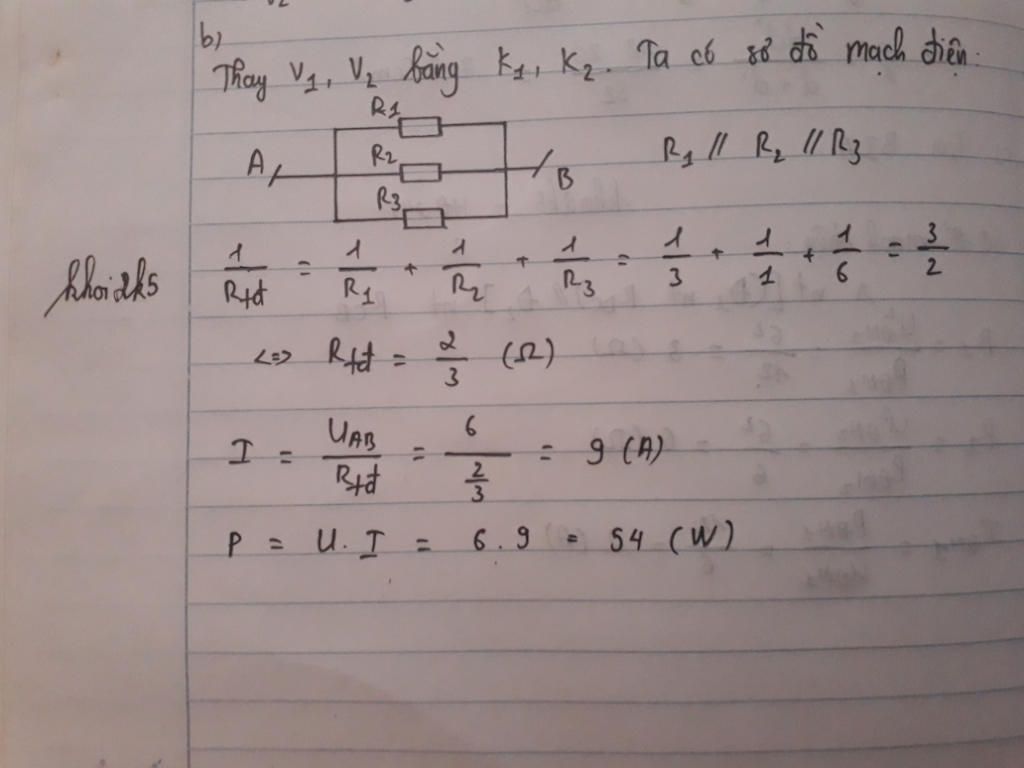 b)
Thay V1, V2 bằng K1, K2. Ta có sơ đồ mạch điện:
R1
A R2 B
R3
R1 // R2 // R3
khoi2k5
1/Rtđ = 1/R1 + 1/R2 + 1/R3 = 1/3 + 1/1 + 1/6 = 3/2
<=> Rtđ = 2/3 (Ω)
I = UAB/Rtđ = 6/(2/3) = 9 (A)
P = U.I = 6.9 = 54 (W)